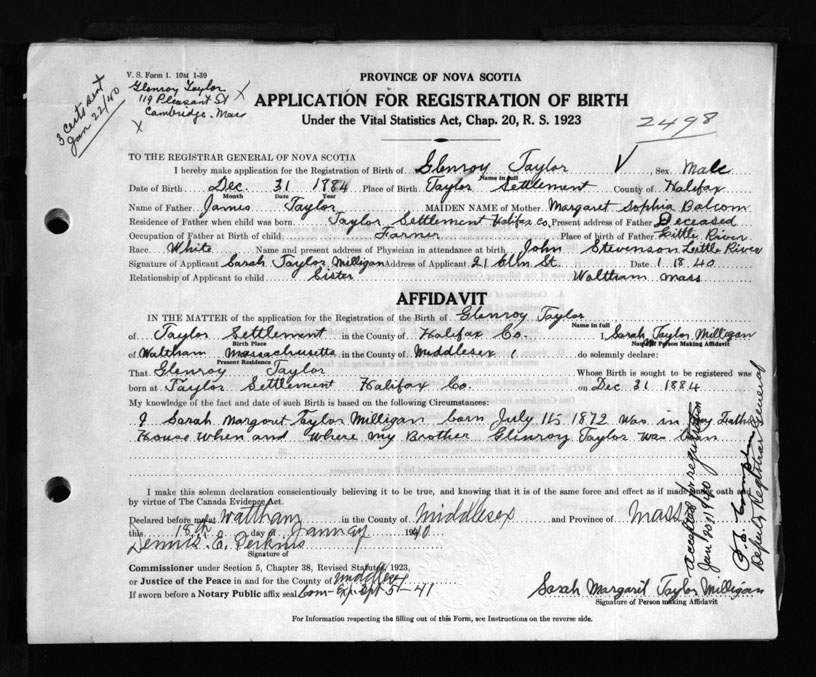 3 certs sent
Jan 22/40
V. S. Form 1. 10M 1-39
Glenroy Taylor X
119 Pleasant St
Cambridge. Mass
X
PROVINCE OF NOVA SCOTIA
APPLICATION FOR REGISTRATION OF BIRTH
Under the Vital Statistics Act, Chap. 20, R. S. 1923
2498
TO THE REGISTRAR GENERAL OF NOVA SCOTIA
I hereby make application for the Registration of Birth of Glenroy Taylor V Sex Male
Name in full
Date of Birth Dec 31 1884 Place of Birth Taylor Settlement County of Halifax
Month Date Year
Name of Father James Taylor MAIDEN NAME of Mother Margaret Sophia Balcom
Residence of Father when child was born Taylor Settlement Halifax Co. Present address of Father Deceased
Occupation of Father at Birth of child Farmer Place of birth of Father Little River
Race White Name and present address of Physician in attendance at birth John Stevenson Little River
Signature of Applicant Sarah Taylor Milligan Address of Applicant 21 Elm St. Date 1 18 40
Relationship of Applicant to child Sister Waltham Mass
AFFIDAVIT
IN THE MATTER of the application for the Registration of the Birth of Glenroy Taylor
Name in full
of Taylor Settlement in the County of Halifax Co. I Sarah Taylor Milligan
Birth Place Name of Person Making Affidavit
of Waltham Massachusetts in the County of Middlesex do solemnly declare:
Present Residence
That Glenroy Taylor Whose Birth is sought to be registered was
born at Taylor Settlement Halifax Co. on Dec 31 1884
My knowledge of the fact and date of such Birth is based on the following Circumstances:
I Sarah Margaret Taylor Milligan born July 1872 Was in my Father
House When and Where My Brother Glenroy Taylor Was born
I make this solemn declaration conscientiously believing it to be true, and knowing that it is of the same force and effect as if made under oath and
by virtue of The Canada Evidence Act.
Declared before me at Waltham in the County of Middlesex and Province of Mass
this 18th day of January 1940
Dennis C. Perkins
Signature of
Commissioner under Section 5, Chapter 38, Revised Statutes, 1923,
or Justice of the Peace in and for the County of Middlesex
If sworn before a Notary Public affix seal Com-Exp-Sept 5-41
Sarah Margaret Taylor Milligan
Signature of Person making Affidavit
For Information respecting the filling out of this Form, see Instructions on the reverse side.
Accepted for registration
Jan 20 1940
Deputy Registrar General